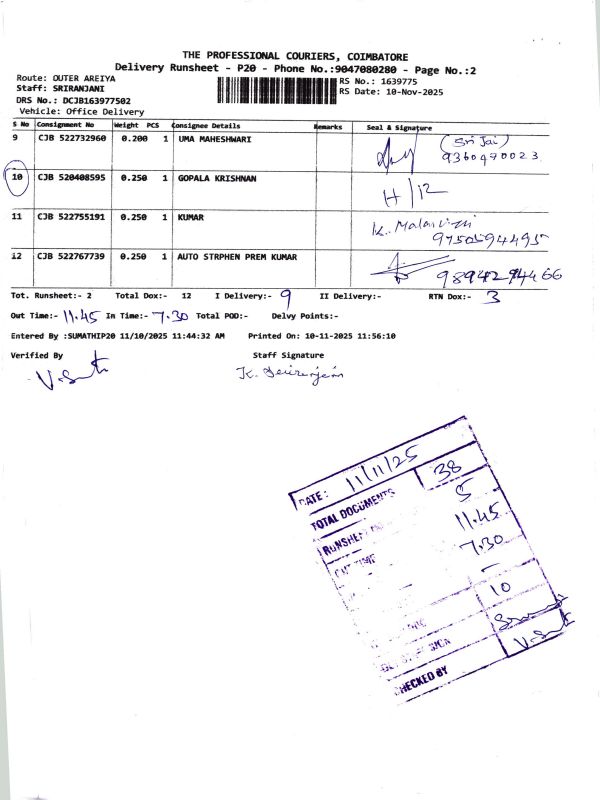 THE PROFESSIONAL COURIERS, COIMBATORE
Delivery Runsheet - P20 - Phone No.:9047080280 - Page No.:2
Route: OUTER AREIYA
RS No.: 1639775
Staff: SRIRANJANI
RS Date: 10-Nov-2025
DRS No.: DCJB163977502
Vehicle: Office Delivery
S No Consignment No Weight PCS Consignee Details Remarks Seal & Signature
9 CJB 522732960 0.200 1 UMA MAHESHWARI (Sri Jai) 9360490023
10 CJB 520408595 0.250 1 GOPALA KRISHNAN H/12
11 CJB 522755191 0.250 1 KUMAR K. 9750594495
12 CJB 522767739 0.250 1 AUTO STRPHEN PREM KUMAR 9894294466
Tot. Runsheet:- 2 Total Dox:- 12 I Delivery:- 9 II Delivery:- RTN Dox:- 3
Out Time:- 11.45 In Time:- 7.30 Total POD:- Delvy Points:-
Entered By :SUMATHIP20 11/10/2025 11:44:32 AM Printed On: 10-11-2025 11:56:10
Verified By Staff Signature
DATE: 11/11/25
TOTAL DOCUMENTS 38
5
11.45
7.30
-
10
CHECKED BY